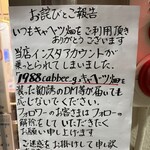 お詫びとご報告
いつもキャベツ畑をご利用頂き
ありがとうございます
当店インスタアカウントが
乗っとられてしまいました。
1988cabbee.g.キャベツ畑を
装った勧誘のDM等が届いても
応じないでください。
フォロワーのお客さまはフォローの
解除をしていただきたく
お願い申し上げます
ご迷惑をお掛けして申し訳